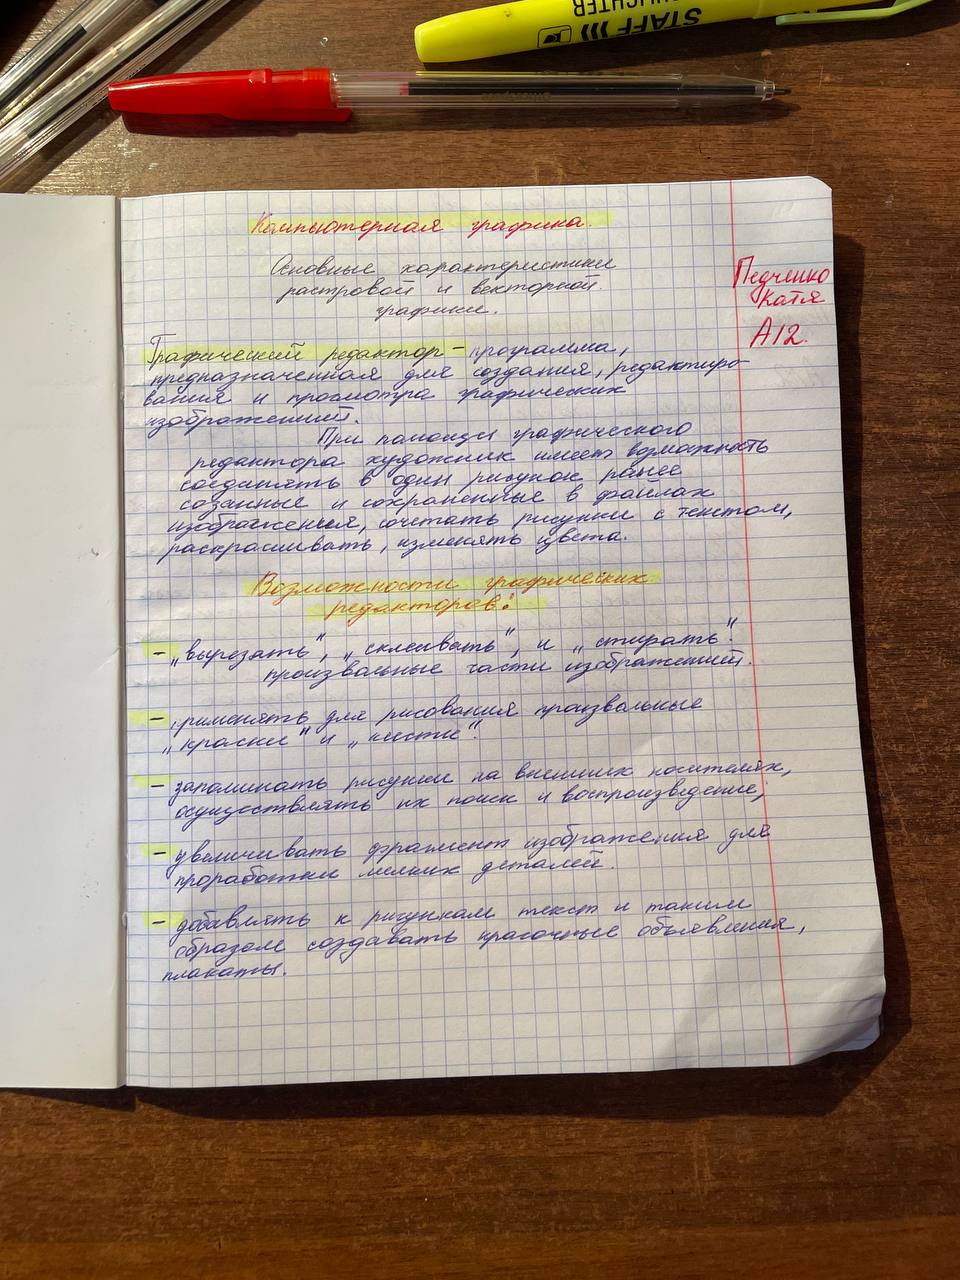 STAFF
HIGHLIGHTER
Компьютерная графика.
Основные характеристики
растровой и векторной
графики.
Педченко
Катя
А12.
Графический редактор – программа,
предназначенная для создания, редактиро-
вания и просмотра графических
изображений.
При помощи графического
редактора художник имеет возможность
соединять в один рисунок ранее
созанные и сохраненные в файлах
изображения, сочетать рисунки с текстом,
раскрашивать, изменять цвета.
Возможности графических
редакторов:
– „вырезать", „склеивать", и „стирать".
произвальные части изображений.
– применять для рисования произвальные
„краски" и „кисти".
– запоминать рисунки на внешних носителях,
осуществлять их поиск и воспроизведение;
– увеличивать фрагмент изображения для
проработки мелких деталей.
– добавлять к рисункам текст и таким
образом создавать красочные объявления,
плакаты.